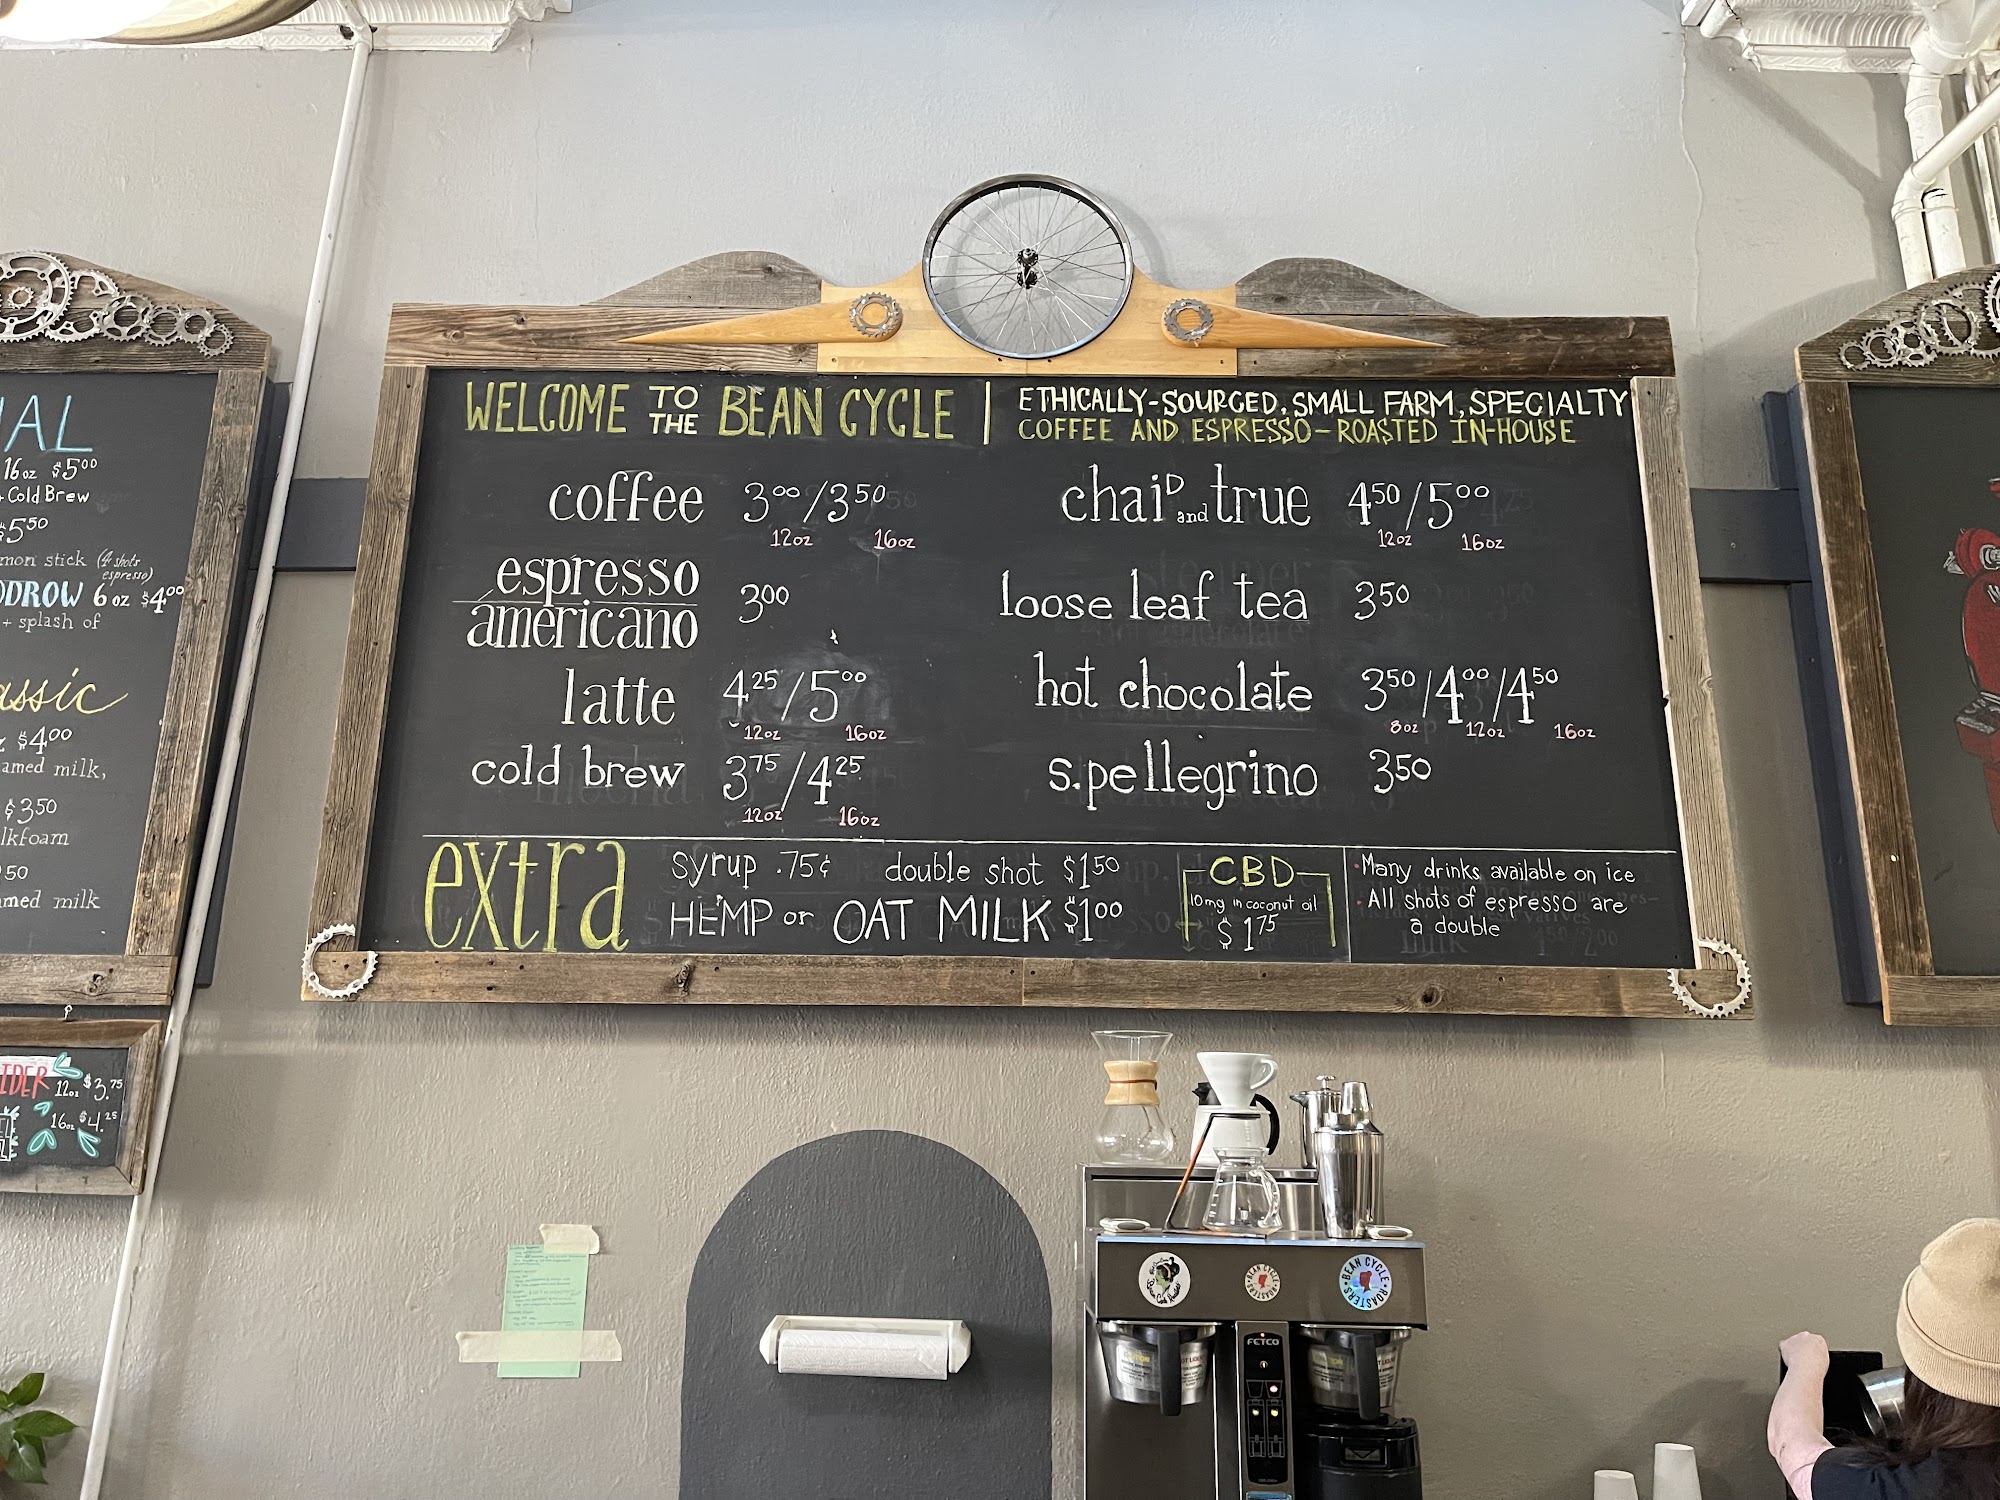 WELCOME TO THE BEAN CYCLE
ETHICALLY-SOURCED, SMALL FARM, SPECIALTY
COFFEE AND ESPRESSO-ROASTED IN-HOUSE
coffee 3⁰⁰/3⁵⁰
12oz 16oz
espresso
americano
3⁰⁰
latte 4²⁵/5⁰⁰
12oz 16oz
cold brew 3⁷⁵/4²⁵
12oz 16oz
chai'D and true 4⁵⁰/5⁰⁰
12oz 16oz
loose leaf tea 3⁵⁰
hot chocolate 3⁵⁰/4⁰⁰/4⁵⁰
8oz 12oz 16oz
s.pellegrino 3⁵⁰
extra
syrup .75¢ double shot $1⁵⁰
HEMP or OAT MILK $1⁰⁰
CBD
10mg in coconut oil
$1⁷⁵
·Many drinks available on ice
·All shots of espresso are
a double
16oz $5⁰⁰
Cold Brew
$5⁵⁰
stick (4 shots
espresso)
6oz $4⁰⁰
+ splash of
$4⁰⁰
milk,
$3⁵⁰
50
milk
12oz $3.⁷⁵
16oz $4.²⁵
BEAN CYCLE
ROASTERS
BEAN CYCLE
ROASTERS
FETCO